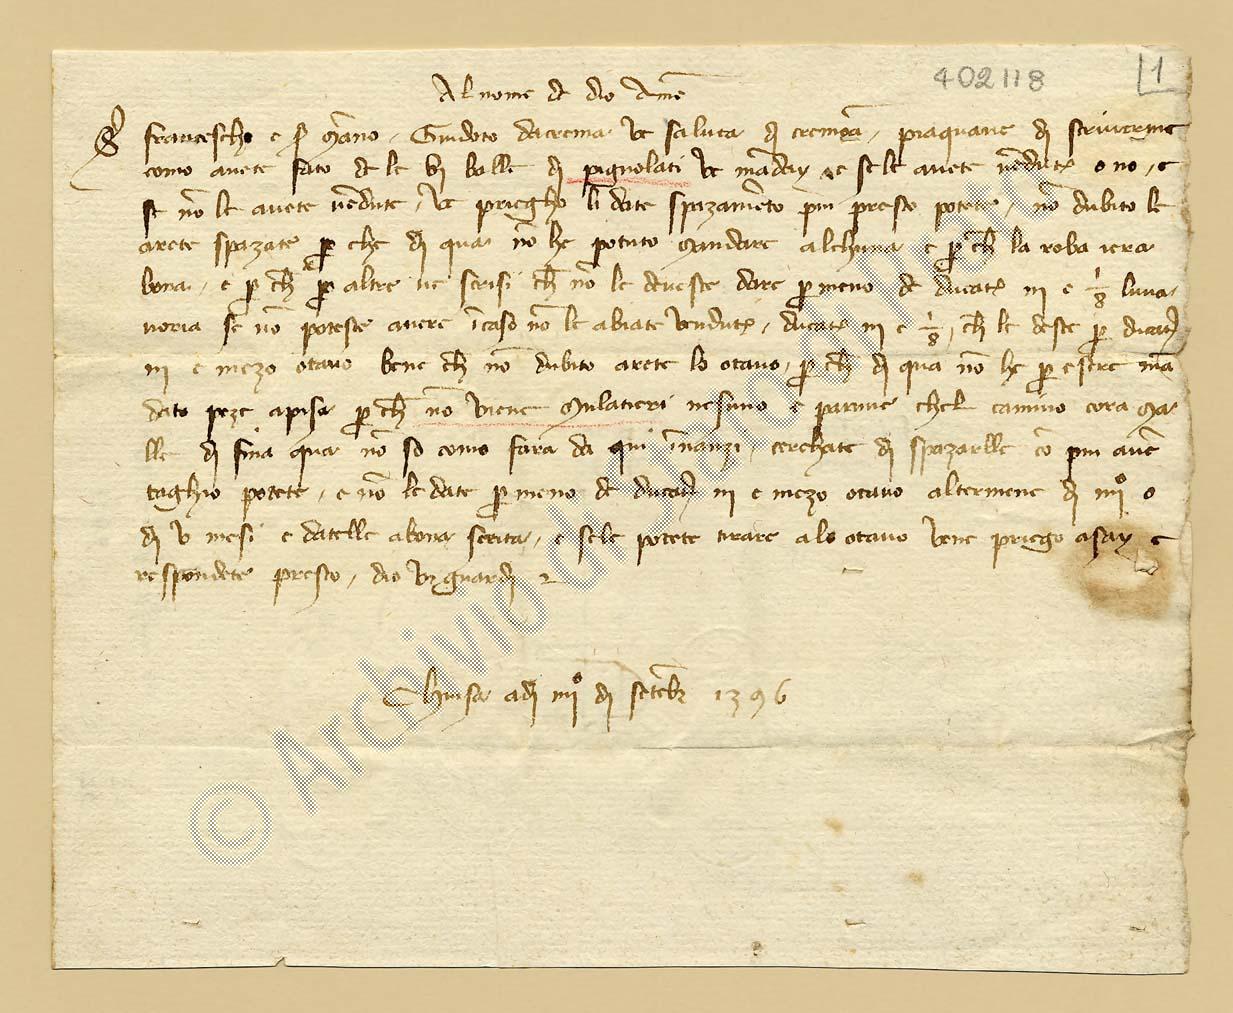 402118
1
Al nome de dio Ame
Francescho e Mano Guidoto da crema ve saluta di cremona piaquave di scriverme
como avete fato de le VI balle di pignolati ve mandai e se le avete vendute o no e
se no le avete vendute ve priegho li date spazameto piu presto potete no dubito le
arete spazate per che di qua no he potuto mandare alchuna e per che la roba iera
bona e per che per altre ve scrisi che no le deveste dare per meno de ducati III e 1/8 l'una
se no poteste avere no le abiate vendute ducati III e 1/8 che le deste per ducati
III e mezo otavo bene che no dubito arete lo otavo per che di qua no he per esere man
dato peze a pisa per che no viene mulatieri nesuno e parme che l camino cora ma
lle di fina qua no so como fara da qui inanzi cerchate di spazarlle co piu aven
taghio potete e no le date per meno de ducati III e mezo otavo al termene di IIII o
di V mesi e datelle a bona scrita e se le potete tirare a lo otavo vene priego asay e
respondete presto dio vi guardi
adi IIII di setembre 1396
© Archivio di Stato di Prato